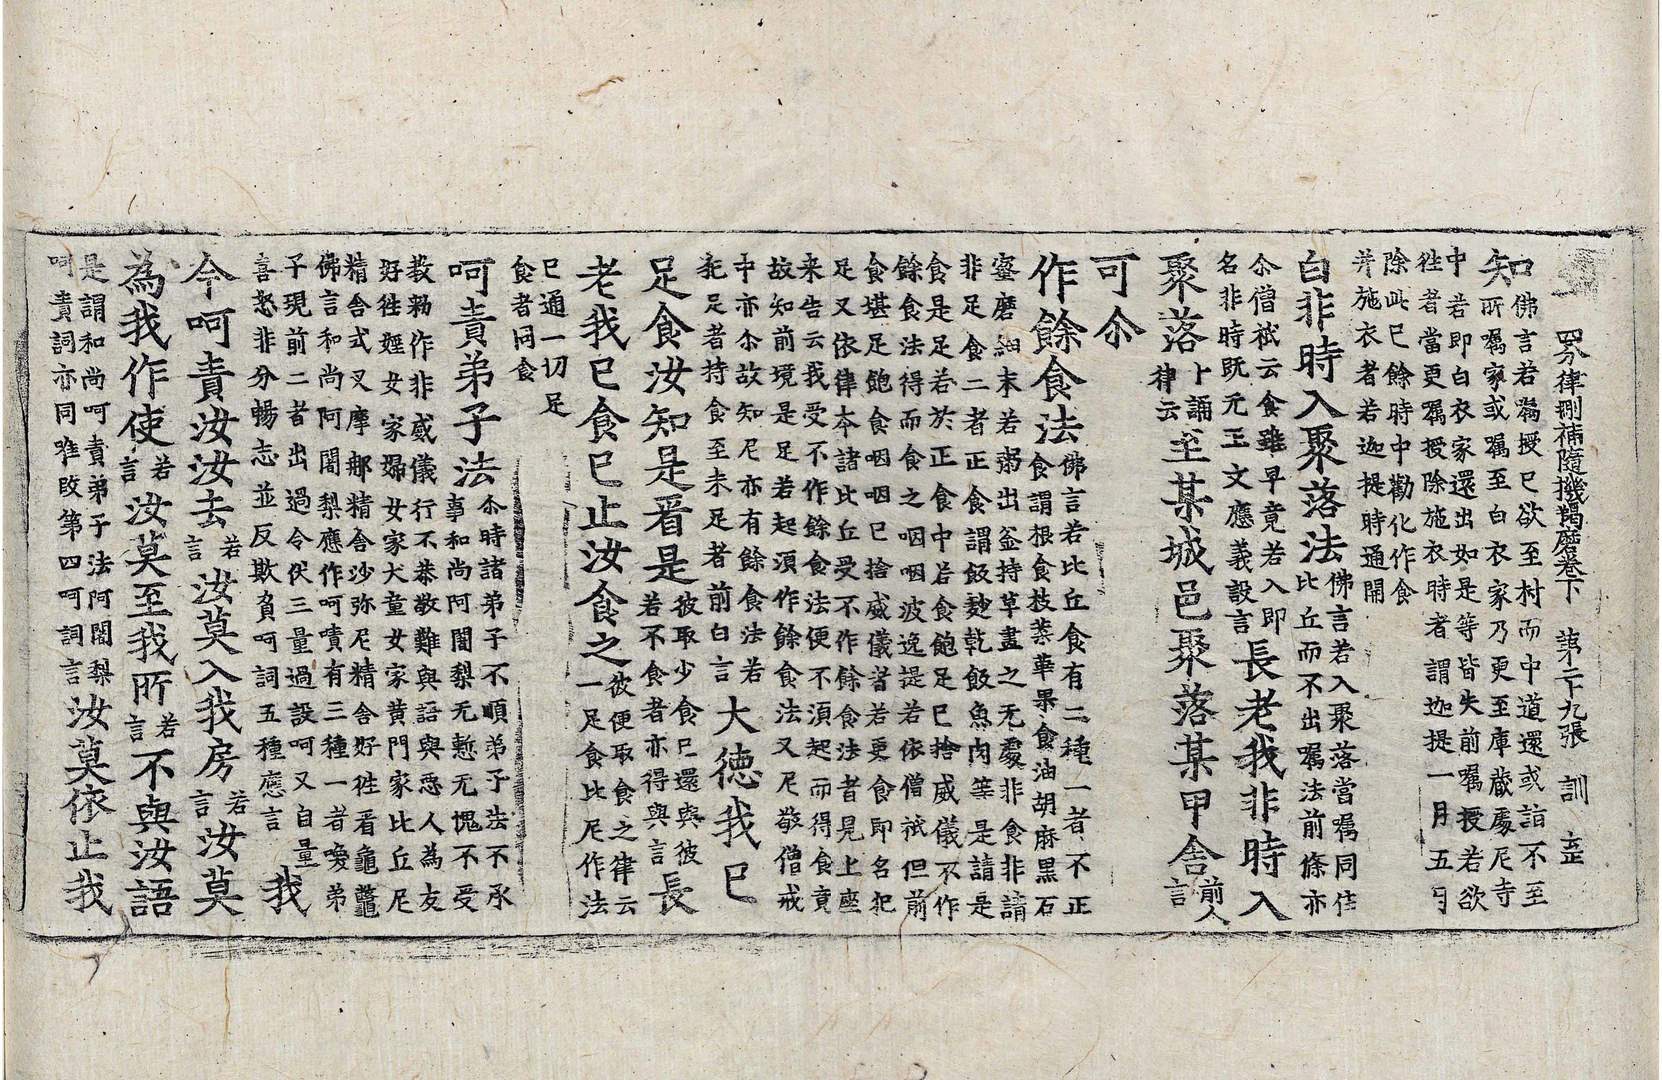 四分律刪補隨機羯磨卷下　第二十九張　訓　𦤺
知佛言若囑授已欲至村而中道還或詣不至
所囑家或囑至白衣家乃更至庫藏處尼寺
中若即白衣家還出如是等皆失前囑授若欲
往者當更囑授除施衣時者謂迦提一月五月
除此已餘時中勸化作食
并施衣者若迦提時通開
白非時入聚落法佛言若入聚落當囑同住
比丘而不出囑法前條亦
尒僧祇云食雖早竟若入即
名非時既无正文應義設言長老我非時入
聚落卜誦
律云至某城邑聚落某甲舍前人
言
可尒
作餘食法佛言若比丘食有二種一者不正
食謂根食枝葉華果食油胡麻黑石
蜜磨細末若粥出釜持草畫之无處非食非請
非足食二者正食謂飯麨乾飯魚肉等是請是
食是足若於正食中若食飽足已捨威儀不作
餘食法得而食之咽咽波逸提若依僧祇但前
食堪足飽食咽咽已捨威儀者若更食即名犯
足又依律本諸比丘受不作餘食法者見上座
来告云我受不作餘食法便不須起而得食竟
故知前境是足若起須作餘食法又尼敬僧戒
中亦尒故知尼亦有餘食法若
犯足者持食至未足者前白言大德我已
足食汝知是看是彼取少食已還與彼
若不食者亦得與言長
老我已食已止汝食之彼便取食之律云
一足食比丘作法
已通一切足
食者同食
呵責弟子法尒時諸弟子不順弟子法不承
事和尚阿闍梨无慙无愧不受
教勑作非威儀行不恭敬難與語與惡人為友
好往婬女家婦女家大童女家黄門家比丘尼
精舍式叉摩那精舍沙弥尼精舍好往看龜鼈
佛言和尚阿闍梨應作呵責有三種一者喚弟
子現前二者出過令伏三量過設呵又自量
喜怒非分暢志並反欺負呵詞五種應言我
今呵責汝汝去若
言汝莫入我房若
言汝莫
為我作使若
言汝莫至我所若
言不與汝語
是謂和尚呵責弟子法阿闍梨
呵責詞亦同唯改第四呵詞言汝莫依止我